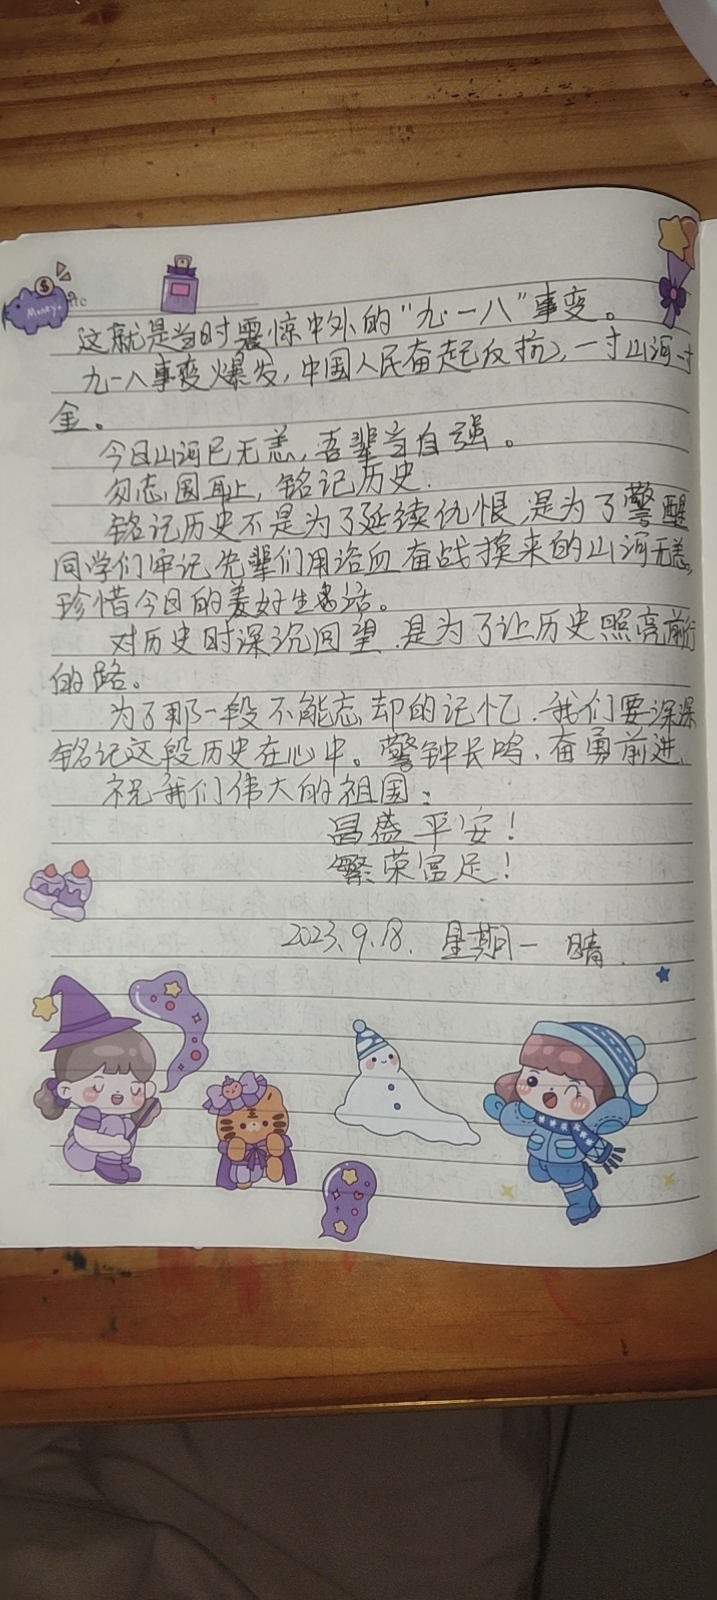 Money
这就是当时震惊中外的“九·一八”事变。
九一八事变爆发,中国人民奋起反抗,一寸山河一寸
金。
今日山河已无恙,吾辈当自强。
勿忘国耻,铭记历史.
铭记历史不是为了延续仇恨,是为了警醒
同学们牢记先辈们用浴血奋战换来的山河无恙,
珍惜今日的美好生活。
对历史时深沉回望,是为了让历史照亮前行
的路。
为了那一段不能忘却的记忆.我们要深深
铭记这段历史在心中。警钟长鸣,奋勇前进.
祝我们伟大的祖国:
昌盛平安!
繁荣富足!
2023.9.18. 星期一 晴.